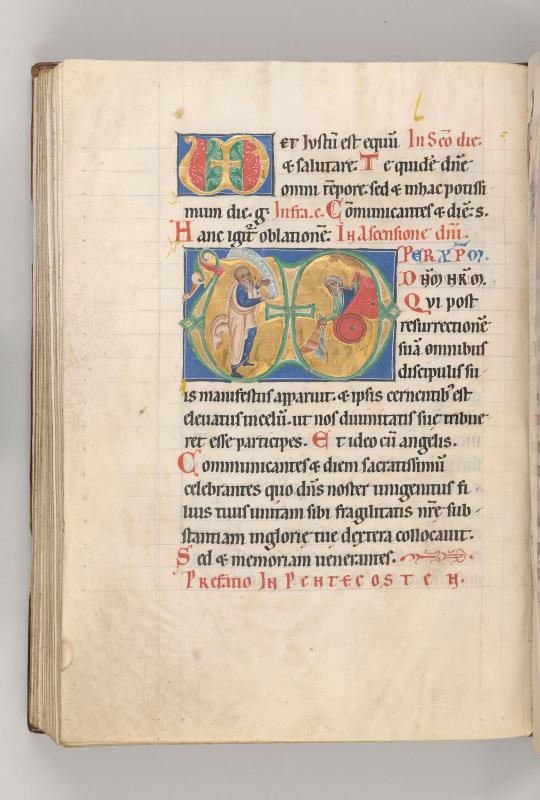 et iustū est equū In Scō die.
& salutare: Te quidē dn̄e
omni tēpore. sed & in hac potissi
mum die. g. Infra. c. Cōmunicantes & diē: s.
Hanc igit oblationē: In Ascensione dn̄i.
PER XP̄M.
DN̄M NR̄M.
Qui post
resurrectionē
suā omnibus
discipulis su
is manifestus apparuit. & ipsis cernentib est
eleuatus in celū. ut nos diuinitatis sue tribue
ret esse participes. Et ideo cū angelis.
Communicantes & diem sacratissimū
celebrantes quo dn̄s noster unigenitus fi
lius tuus unitam sibi fragilitatis nr̄e sub
stantiam in glorie tue dextera collocauit.
Sed & memoriam uenerantes.
Prefatio In Pentecosten.